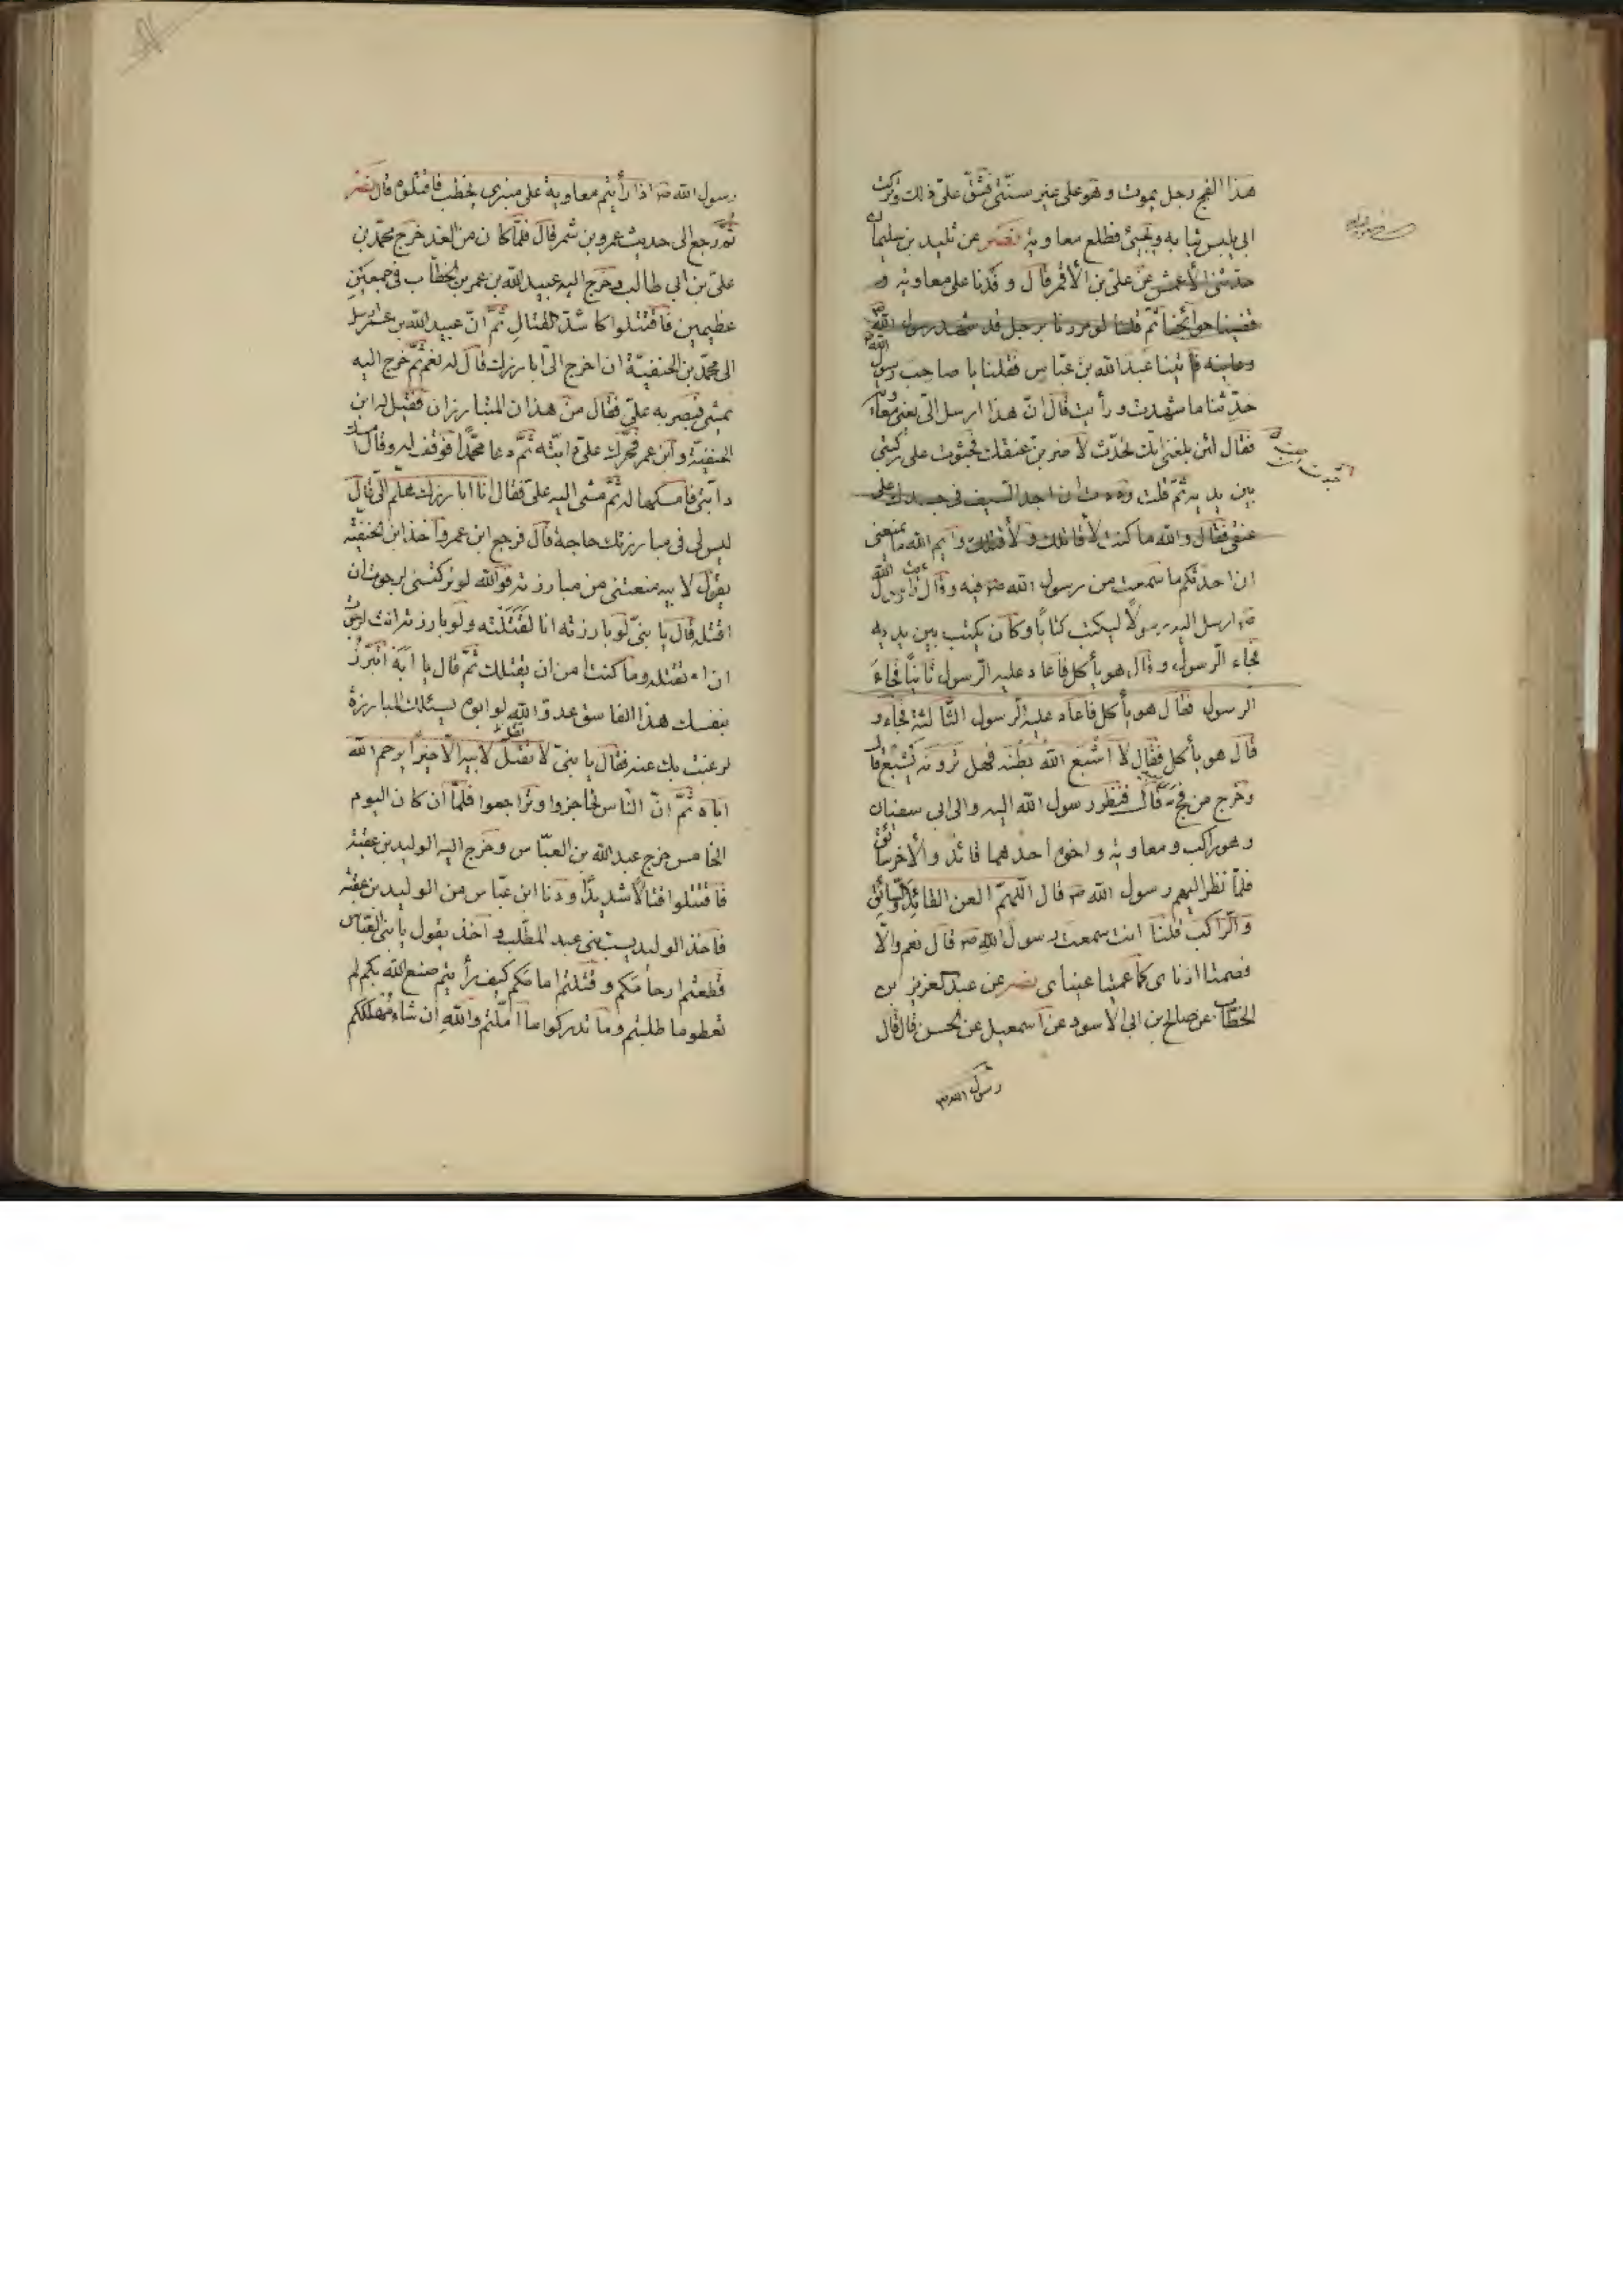 هذا الفج رجل يموت وهو على غير سنّتى فشقّ علىّ ذلك وتركت
ابى يلبس ثيابه ويجيئ فطلع معاوية نصر عن تليد بن سليمان
حدّثنى الأعمش عن علىّ بن الأقمر قال وفدنا على معاوية و
قضينا حوائجنا ثمّ قلنا لو مررنا برجل قد شهد رسول الله
وعاينه فأتينا عبد الله بن عبّاس فقلنا يا صاحب رسول الله
حدّثنا ما شهدت ورأيت قال انّ هذا ارسل الىّ يعنى معاوية
فقال لئن بلغنى انّك تحدّث لأضربنّ عنقك فجثوت على ركبتى
بين يديه ثمّ قلت وددت ان احد السيف فى جسدك على
عنقى فقال والله ما كنت لأقاتلك ولا أقتلك وايم الله ما يمنعنى
ان احدّثكم ما سمعت من رسول الله ص فيه وقال رأيت رسول الله
ص ارسل اليه رسولاً ليكتب كتاباً وكان يكتب بين يديه
فجاء الرّسول وقال هو يأكل فأعاد عليه الرّسول ثانياً فجاء
الرسول فقال هو يأكل فاعاد عليه الرّسول الثّالثة فجاء و
قال هو يأكل فقال لا اشبع الله بطنه فهل ترونه يشبع قال
وخرج من فج قال فنظر رسول الله اليه والى ابى سفيان
وهو راكب ومعاوية واخوه احدهما قائد والأخر سائق
فلمّا نظر اليهم رسول الله ص قال اللّهمّ العن القائد والسّائق
والرّاكب قلنا انت سمعت رسول الله ص قال نعم والّا
فصمّتا اذناى كما عميتا عيناى نصر عن عبد العزيز بن
الخطّاب عن صالح بن ابى الأسود عن اسمعيل عن الحسن قال قال
رسول الله ص
رسول الله ص اذا رأيتم معاوية على منبرى يخطب فاقتلوه قال نصر
ثمّ رجع الى حديث عمرو بن شمر قال فلمّا كان من الغد خرج محمّد بن
علىّ بن ابى طالب وخرج اليه عبيد الله بن عمر بن الخطّاب فى جمعين
عظيمين فاقتتلوا كاشدّ القتال ثمّ انّ عبيد الله بن عمر ارسل
الى محمّد بن الحنفيّة ان اخرج الىّ ابارزك قال له نعم ثمّ خرج اليه
يمشى فبصر به علىّ فقال من هذان المتبارزان فقيل له ابن
الحنفيّة وابن عمر فحرّك علىّ دابّته ثمّ دعا محمّداً فوقف له وقال امسك
دابّتى فامسكها له ثمّ مشى اليه علىّ فقال انا ابارزك هلمّ الىّ قال
ليس لى فى مبارزتك حاجة قال فرجع ابن عمر واخذ ابن الحنفيّة
يقول لابيه منعتنى من مبارزته فوالله لو تركتنى لرجوت ان
اقتله قال يا بنىّ لو بارزته انا لقتلته ولو بارزته انت لرجوت
ان تقتله وما كنت امن ان يقتلك ثمّ قال يا ابة اتبرز
بنفسك هذا الفاسق عدوّ الله لو ابوه يسئلك المبارزة
لرغبت بك عنه فقال يا بنىّ لا تقل لابيه الّا خيراً يرحم الله
اباه ثمّ انّ النّاس تحاجزوا وتراجعوا فلمّا ان كان اليوم
الخامس خرج عبد الله بن العبّاس وخرج اليه الوليد بن عقبة
فاقتتلوا قتالاً شديداً ودنا ابن عبّاس من الوليد بن عقبة
فاخذ الوليد يسبّ بنى عبد المطّلب واخذ يقول يا بنى العبّاس
قطعتم ارحامكم وقتلتم امامكم كيف رأيتم صنع الله بكم لم
تعطوا ما طلبتم وما تدركوا ما امّلتم والله ان شاء مهلككم